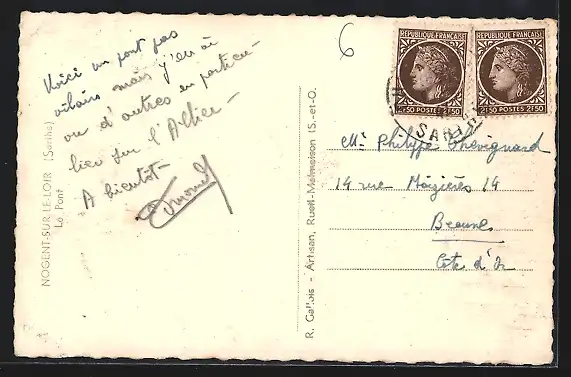 Voici un pont pas
vilain mais j'en ai
vu d'autres en particu-
lier sur l'Allier -
A bientôt -
NOGENT-SUR-LE-LOIR (Sarthe)
Le Pont
R. Gallois - Artisan, Rueil-Malmaison (S.-et-O.
6
REPUBLIQUE FRANÇAISE
2F50 POSTES 2F50
REPUBLIQUE FRANÇAISE
2F50 POSTES 2F50
(SARTHE)
Mr Philippe Chevignard
14 rue Maizières 14
Beaune
Côte d'Or